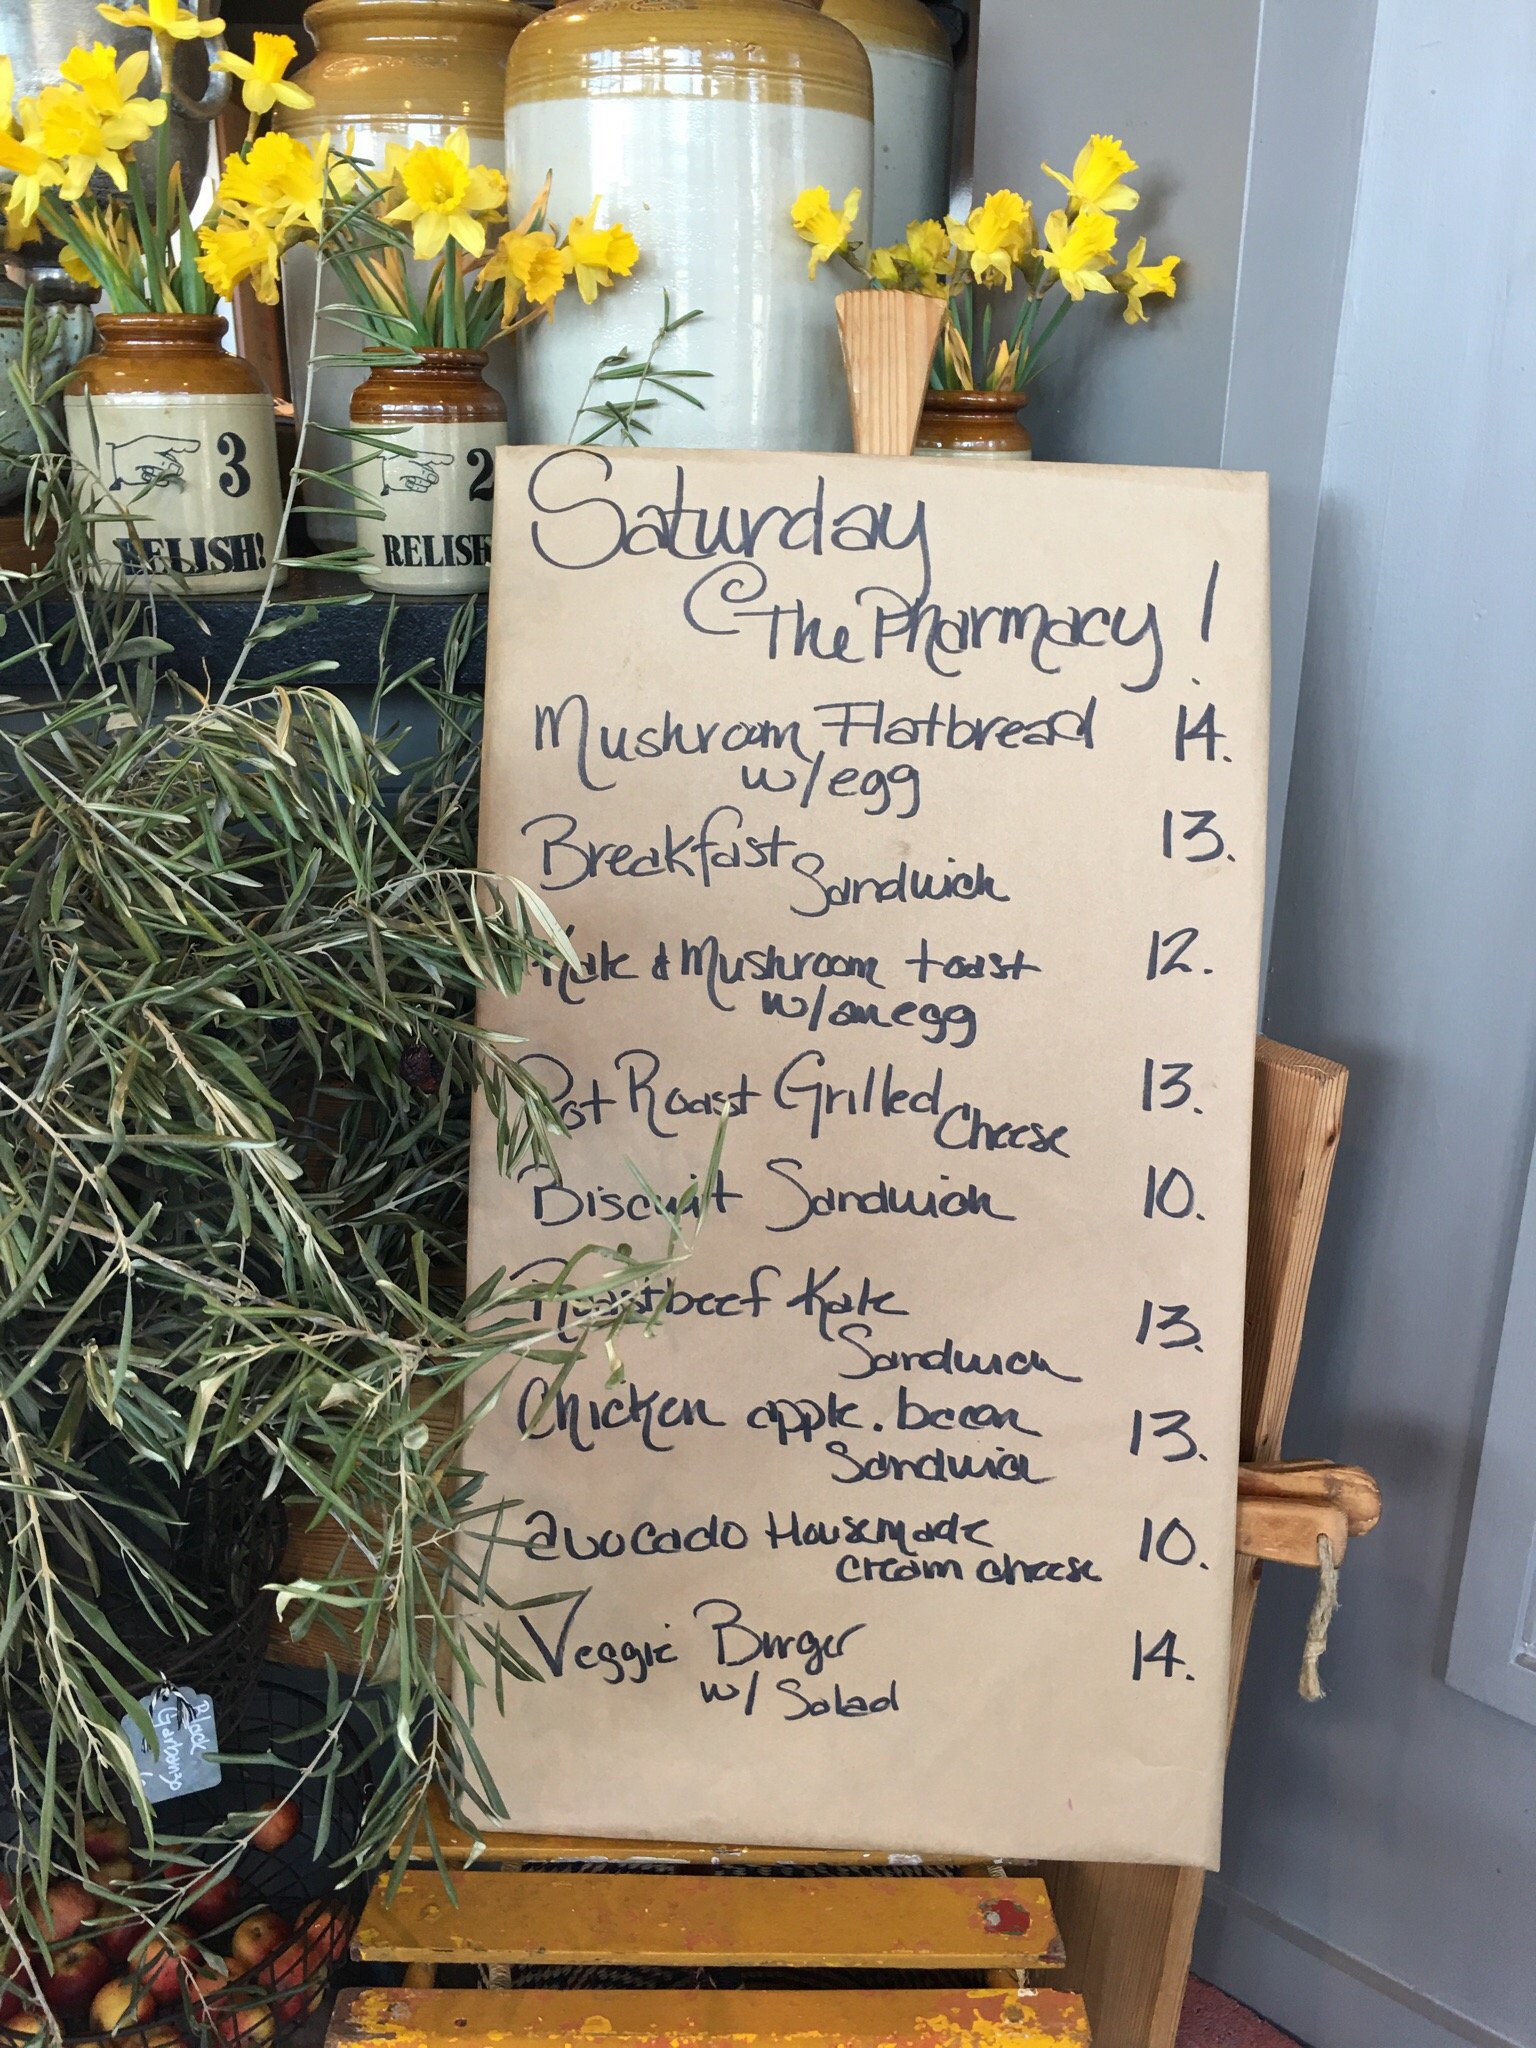 3
RELISH!
2
RELISH
Saturday
@ The Pharmacy!
Mushroom Flatbread 14.
w/egg
Breakfast 13.
Sandwich
Kale & Mushroom toast 12.
w/an egg
Pot Roast Grilled 13.
Cheese
Biscuit Sandwich 10.
Roastbeef Kale 13.
Sandwich
Chicken apple. bacon 13.
Sandwich
avocado Housemade 10.
cream cheese
Veggie Burger 14.
w/ Salad
Black
Garbanzo